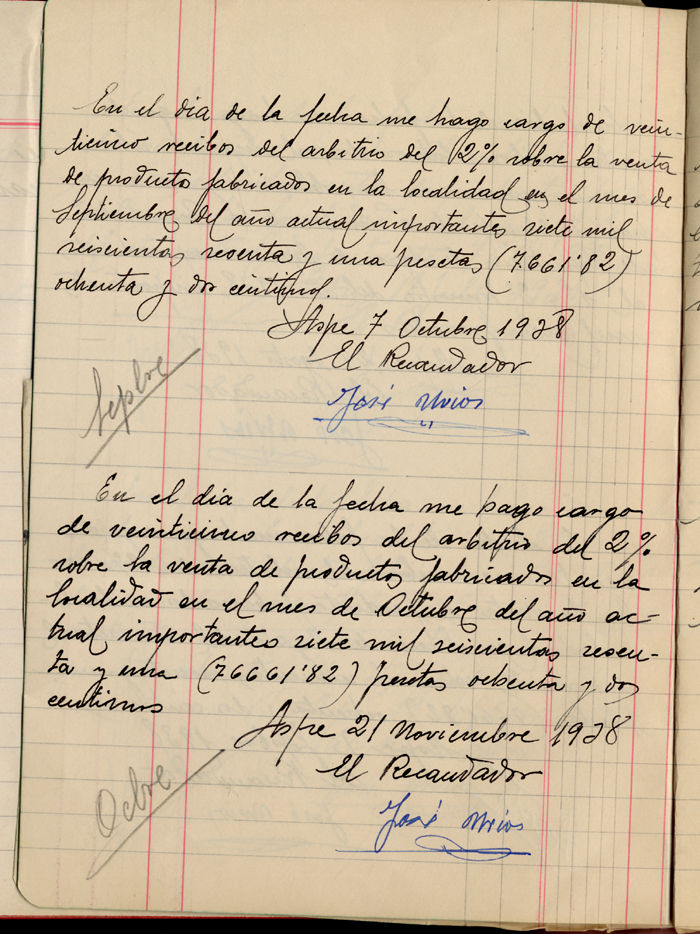 En el dia de la fecha me hago cargo de vein-
ticinco recibos del arbitrio del 2% sobre la venta
de producto fabricados en la localidad en el mes de
Septiembre del año actual importantes siete mil
seiscientas sesenta y una pesetas (7.661'82)
ochenta y dos centimos.
Aspe 7 Octubre 1938
El Recaudador
Sepbre
José Urios
En el dia de la fecha me hago cargo
de veinticinco recibos del arbitrio del 2%
sobre la venta de productos fabricados en la
localidad en el mes de Octubre del año ac-
tual importantes siete mil seiscientas sesen-
ta y una (76661'82) pesetas ochenta y dos
centimos
Aspe 21 Noviembre 1938
El Recaudador
Ocbre
José Urios